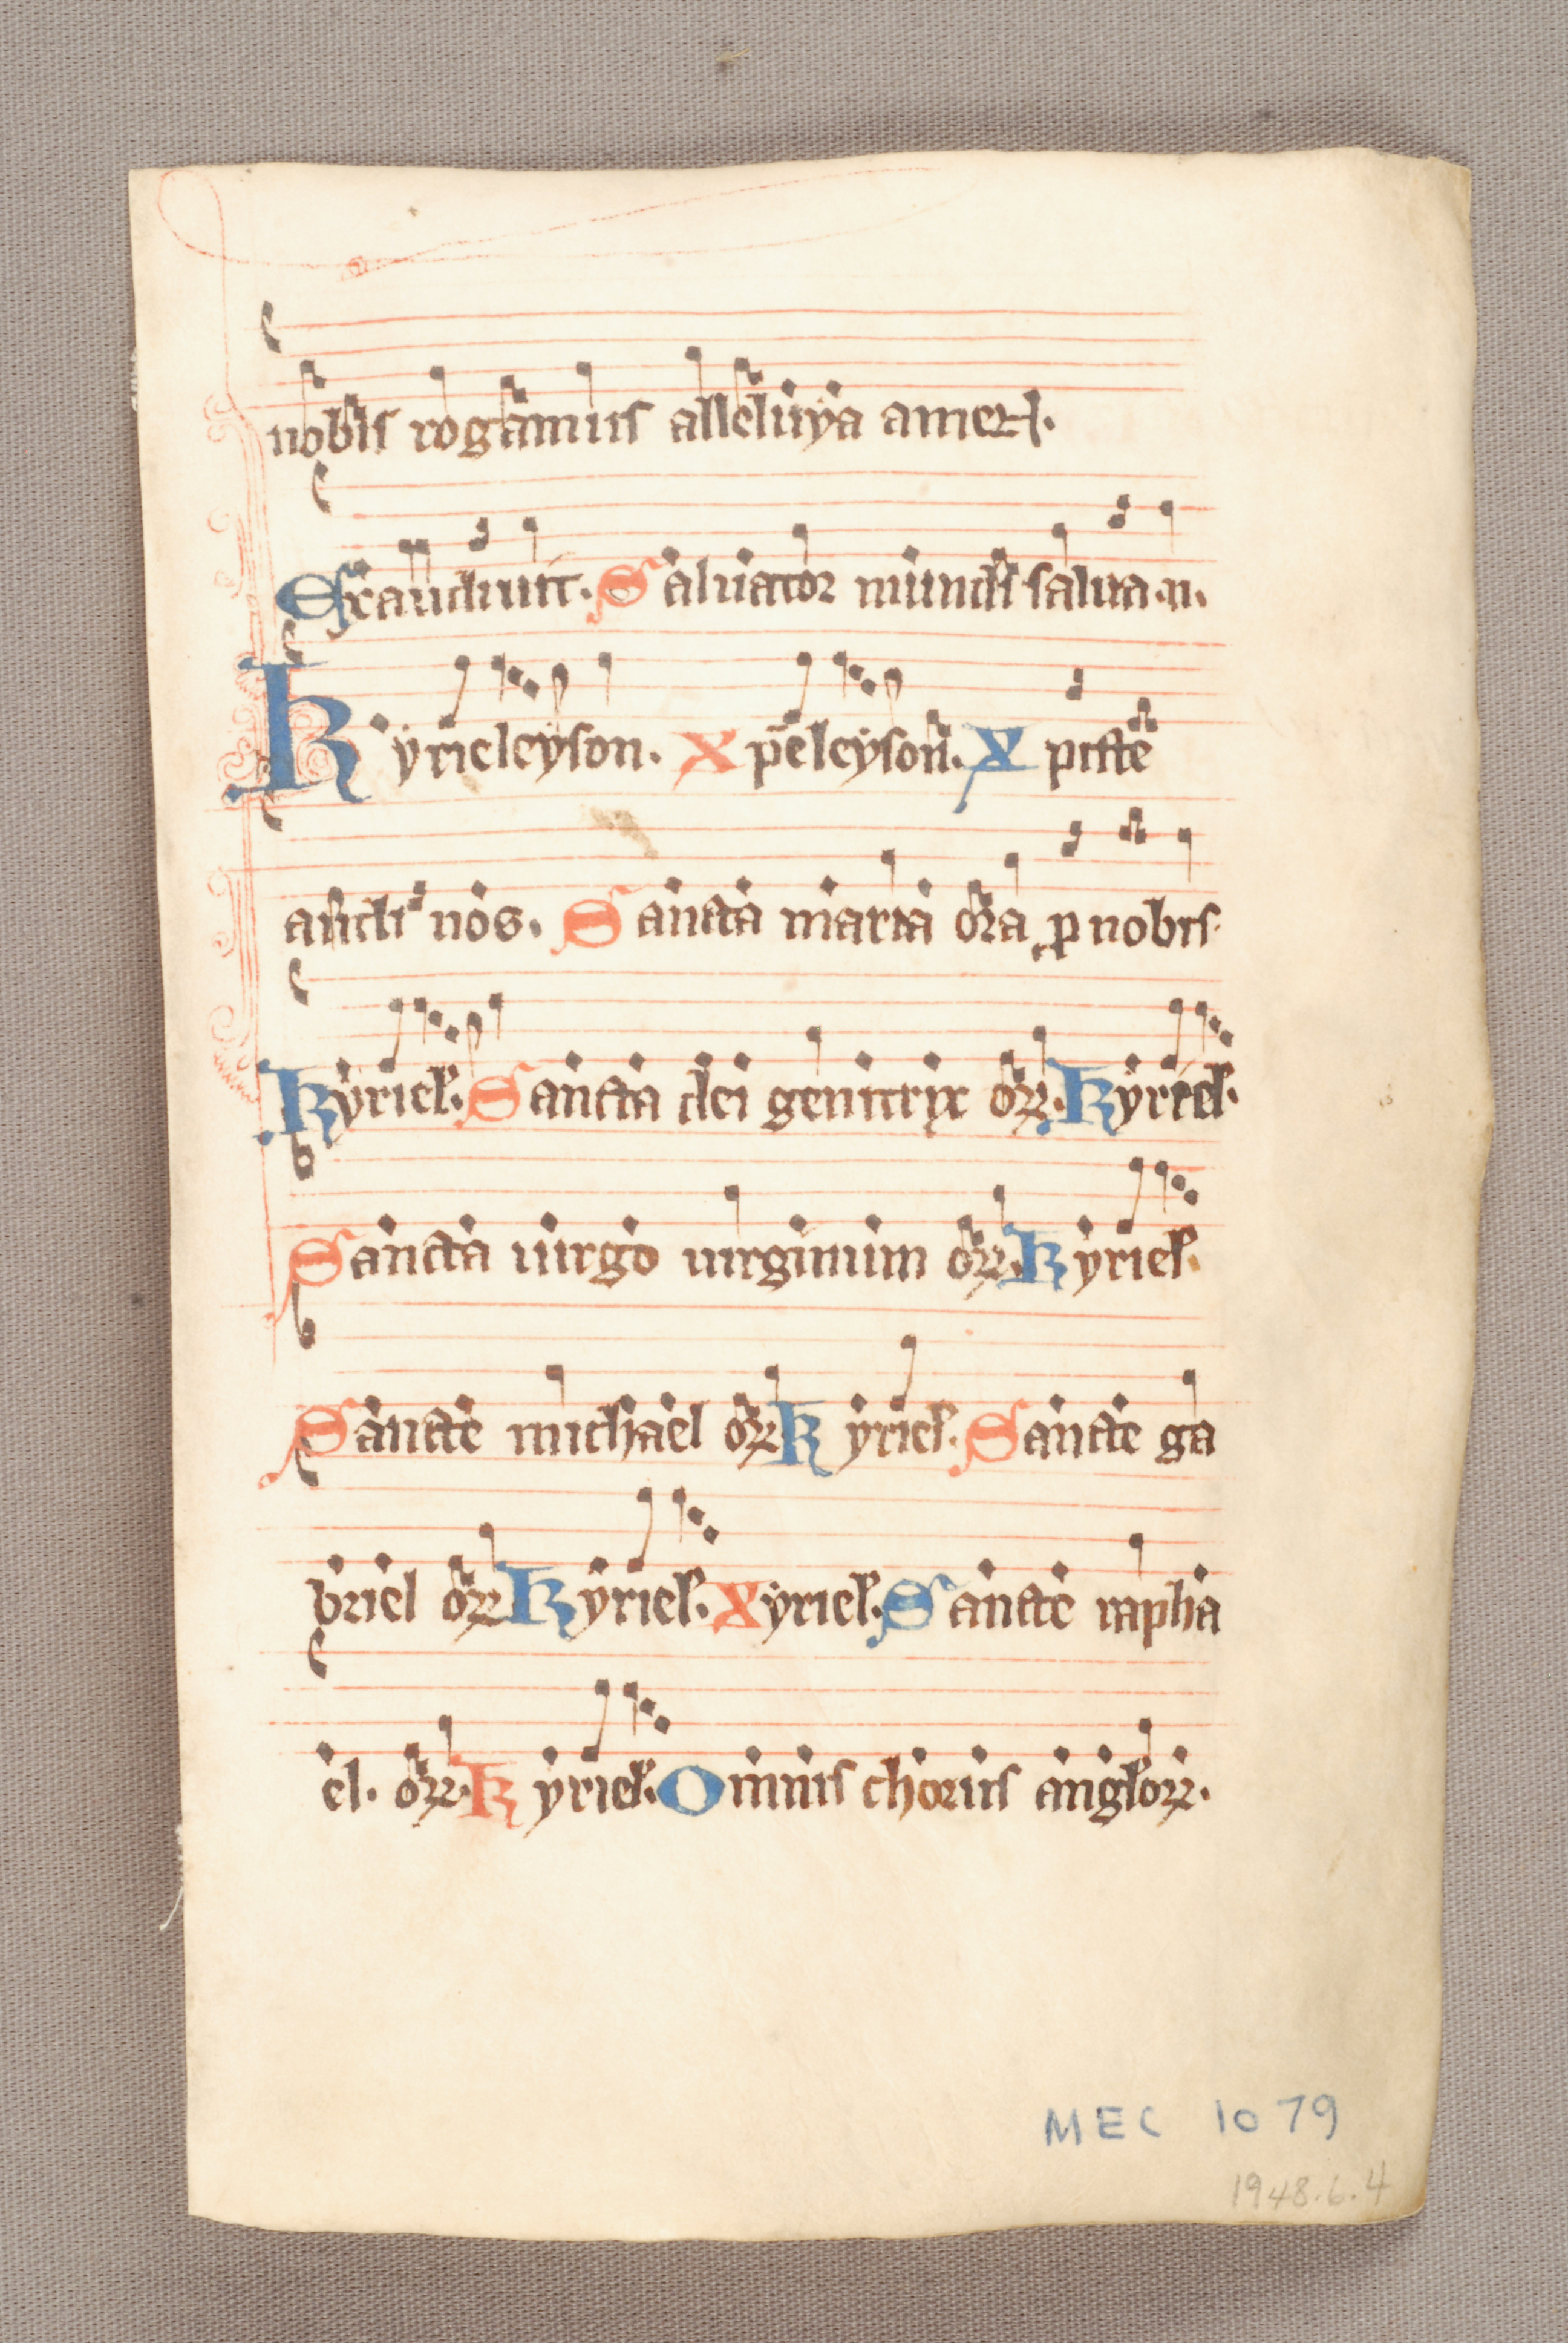 nobis rogamus alleluya amen.
Exaudiuit. Saluator mundi salua .n.
Kyrieleyson. Xpeleyson. Xpicte
audi nos. Sancta maria ora p nobis.
Kyriel. Sancta dei genitrix orꝝ. Kyriel.
Sancta uirgo uirginum orꝝ. Kyriel.
Sancte michael orꝝ Kyriel. Sancte ga
briel orꝝ Kyriel. Xyriel. Sancte rapha
el. orꝝ. Kyriel. Omnis chorus anglorꝝ.
MEC 1079
1948.6.4